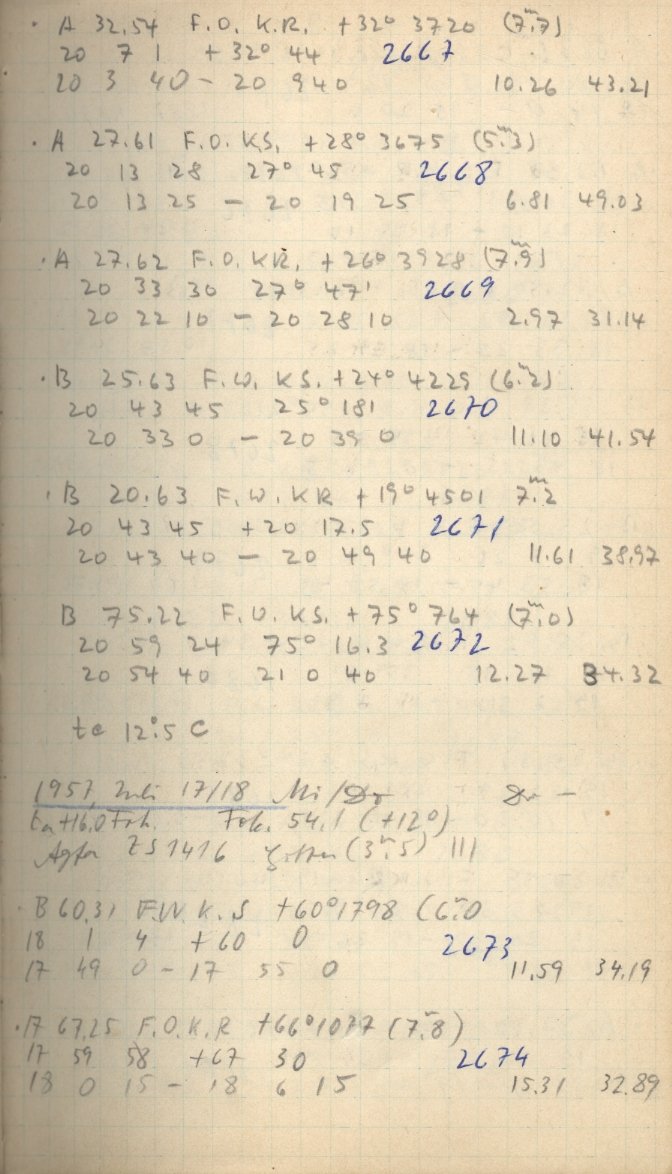 · A 32.54 F.O. K.R. +32° 3720 (7.ᵐ7)
20 7 1 +32° 44 2667
20 3 40 – 20 9 40 10.26 43.21
· A 27.61 F.O. K.S. +28° 3675 (5.ᵐ3)
20 13 28 27° 45 2668
20 13 25 – 20 19 25 6.81 49.03
· A 27.62 F.O. KR. +26° 3928 (7.ᵐ9)
20 33 30 27° 47' 2669
20 22 10 – 20 28 10 2.97 31.14
· B 25.63 F.W. KS. +24° 4229 (6.ᵐ2)
20 43 45 25° 18' 2670
20 33 0 – 20 39 0 11.10 41.54
· B 20.63 F.W. KR +19° 4501 7.ᵐ2
20 43 45 +20 17.5 2671
20 43 40 – 20 49 40 11.61 38.97
B 75.22 F.O. KS. +75° 764 (7.ᵐ0)
20 59 24 75° 16.3 2672
20 54 40 21 0 40 12.27 34.32
te 12°.5 C
1957, Juli 17/18 Mi/Do –
ta +16.0 Fok. 54.1 (+12°)
Agfa ZS 1416 (3.ᵐ5) III
· B 60.31 F.W. K.S +60° 1798 (6.ᵐ0
18 1 4 +60 0 2673
17 49 0 – 17 55 0 11.59 34.19
· A 67.25 F.O.K.R +66° 1077 (7.ᵐ8)
17 59 58 +67 30 2674
18 0 15 – 18 6 15 15.31 32.89